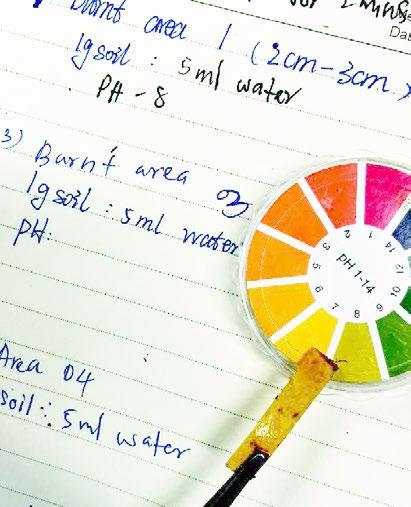 Burnt area 1 (2cm-3cm)
1g soil : 5ml water
PH - 8
3) Burnt area 03
1g soil : 5ml water
PH:
Area 04
soil : 5ml water
pH 1-14
1
2
3
5
6
7
8
9
10
14